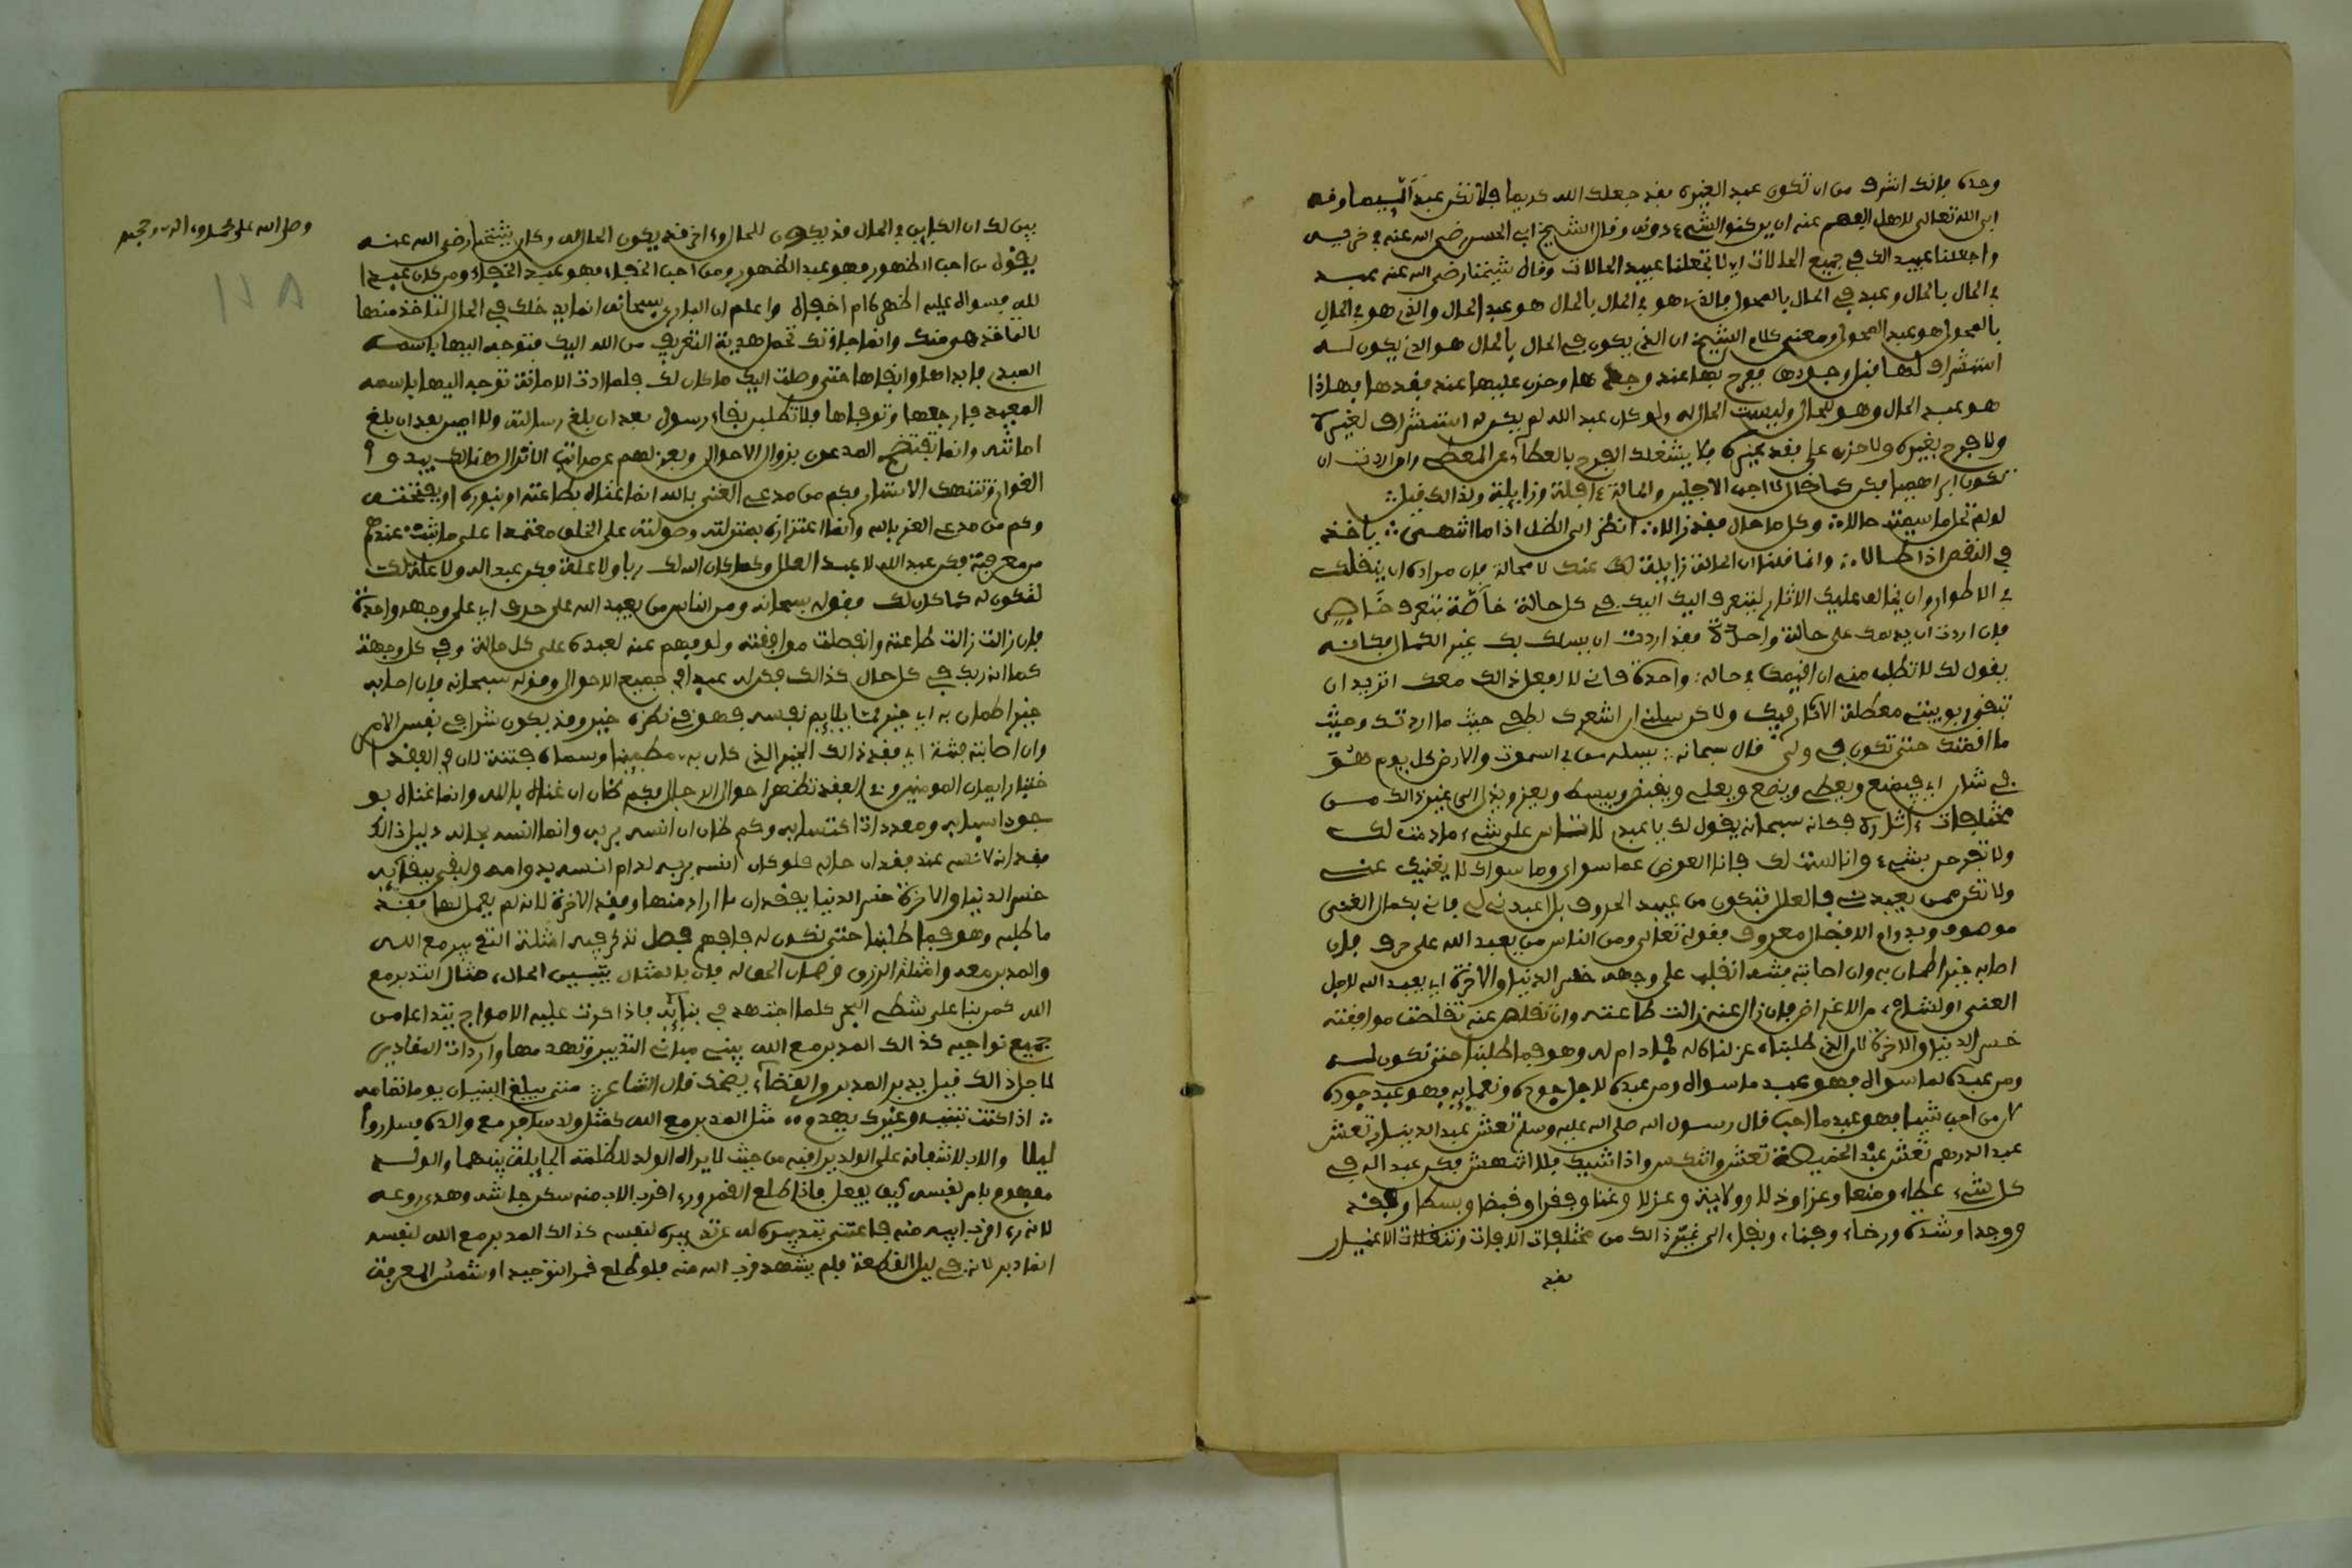 وحده فإنك أشرف من ان تكون عبد الغيره فقد جعلك الله كريما فلا تكن عبدا لئيما وقد
ابى الله تعالى لاهل الفهم عنه ان يركنوا لشيء دونه وقال الشيخ ابو الحسن رضي الله عنه في حزبه
واجعلنا عبيدا لك في جميع الحالات اي لا تجعلنا عبيد الحالات وقال شيخنا رضي الله عنه عبد
في الحال بالحال وعبد في الحال بالمحول فالذي هو في الحال بالحال هو عبد الحال والذي هو في الحال
بالمحول هو عبد المحول ومعنى كلام الشيخ ان الذي يكون في الحال بالحال هو الذي يكون له
استشراف لها قبل وجودها وفرح بها عند وجدها وحزن عليها عند فقدها فهاذا
هو عبد الحال وهو للحال وليست الحال له ولو كان عبد الله لم يكن له استشراف لغيره
ولا فرح بغيره ولا حزن على فقد غيره فلا يشغلك الفرح بالعطاء عن المعطي وان اردت ان
تكون ابراهيميا فكن كما قال لا احب الافلين والحالة ءافلة وزايلة ولذالك قيل
لو لم تحل ما سميت حالا وكل ما حال فقد زالا انظر الى الظل اذا ما انتهى ياخذ
في النقص اذا طالا وانما قلنا ان الحالة زايلة لك عنك لا محالة فإن مراده ان ينقلك
في الاطوار وان يخالف عليك الاثار ليتعرف اليك اليك في كل حالة خاصة بتعرف خاص
فإن اردت ان يديمك على حالة واحدة فقد اردت ان يسلك بك غير الكمال فكانه
يقول لك لا تطلب مني ان اقيمك في حالة واحدة فاني لا افعل ذالك معك اتريد ان
تبقى ربوبيتي معطلة الاثار فيك ولاكن سلني ان اشهدك لطفي حيث ما اردتك وحيث
ما اقمتك حتى تكون في ولي قال سبحانه يسله من في السموت والارض كل يوم هو
في شان اي فيمنع ويعطي ويضع ويعلي ويقبض ويبسط ويعز ويذل الى غير ذالك من
مختلفات ءاثاره فكانه سبحانه يقول لك يا عبدي لا تاس على شيء ما دمت لك
ولا تفرحن بشيء وانا لست لك فانا العوض عما سواي وما سواي لا يغنيك عني
ولا تكن ممن يعبدني في العلل فتكون من عبيد الحروف بل اعبدني لي فاني بكمال الغنى
موصوف وبدوام الافضال معروف فقوله تعالى ومن الناس من يعبد الله على حرف فان
اصابه خير اطمان به وان اصابته فتنة انقلب على وجهه خسر الدنيا والاخرة اي يعبد الله لاجل
الغنى او لشيء من الاغراض فإن زال عنه زالت طاعته وان تقلص عنه تقلصت موافقته
خسر الدنيا والاخرة لان الذي طلبناه عزلناه له فما دام له وهو فما طلبنا حتى نكون له
ومن عبده لما سواه فهو عبد ما سواه ومن عبده لاجل جوده ونعمايه فهو عبد جوده
لان من احب شيئا فهو عبد ما احب قال رسول الله صلى الله عليه وسلم تعس عبد الدينار تعس
عبد الدرهم تعس عبد الخميصة تعس وانتكس واذا شيك فلا انتقش فكن عبد الله في
كل شيء عطاء ومنعا وعزا وذلا وولاية وعزلا وغنا وفقرا وقبضا وبسطا وفقد
ووجدا وشدة ورخاء وفناء وبقاء الى غير ذالك من مختلفات الافات وتنقلات الاغيار
فقد
وصل الله على محمد وءاله وصحبه
١١٨
يبين لك ان الكاين في الحال قد يكون للحال وءاخر قد يكون الحال له وكان شيخنا رضي الله عنه
يقول من احب الظهور فهو عبد الظهور ومن احب الخفاء فهو عبد الخفاء ومن كان عبدا
لله فسواء عليه اظهره ام اخفاه واعلم ان الباري سبحانه انما يدخلك في الحال لتاخذ منها
لا لتاخذ هي منك وانما جاءتك تحمل هدية التعريف من الله اليك فتوجه اليها باسمه
المبدئ فابداها وابقاها حتى وصلت اليك ما كان لك فلما ادت الامانة توجه اليها باسمه
المعيد فارجعها وتوفاها فلا تطلبن بقاء رسول بعد ان بلغ رسالته ولا امين بعد ان بلغ
امانته وانما يفتضح المدعون بزوال الاحوال وبعزلهم عن مراتب الانزال هنالك يبدو
العوار وتنهتك الاستار فكم من مدعي الغنى بالله انما غناه بطاعته او بنوره او بفتحه
وكم من مدعي العز بالله وانما اعتزازه بمنزلته وصولته على الخلق معتمدا على ما ثبت عندهم
من معرفته فكن عبد الله لا عبد العلل وكما كان الله لك ربا ولا علة فكن عبد الله ولا علة لك
لتكون له كما كان لك فقوله سبحانه ومن الناس من يعبد الله على حرف اي على وجهة واحدة
فإن زالت زالت طاعته وانفصلت موافقته ولو فهم عنه لعبده على كل حالة وفي كل وجهة
كما انه ربك في كل حال كذالك فكن له عبدا في جميع الاحوال وقوله سبحانه فإن اصابه
خير اطمان به اي خير مما يلايم نفسه فهو في نظره خير وقد يكون شرا في نفس الامر
وان اصابته فتنة اي فقد ذالك الخير الذي كان به مطمينا وسماه فتنة لان في الفقد ا
ختبار ايمان المومنين وفي الفقد تظهر احوال الرجال فكم ظان ان غناه بالله وانما غناه بو
جود اسبابه ومعددات اكتسابه وكم ظان ان انسه بربه وانما انسه بحاله دليل ذالك
فقدانه لانسه عند فقدان حاله فلو كان انسه بربه لدام انسه بدوامه ولبقي ببقايه
خسر الدنيا والاخرة خسر الدنيا بفقدان ما اراد منها وفقد الاخرة لانه لم يعمل لها فقد
ما طلبه وهو فما طلبنا حتى نكون له فافهم فصل نذكر فيه امثلة التدبير مع الله
والمدبر معه وامثلة الرزق وضمان الحق له فإن بالمثال يتبين الحال مثال التدبير مع
الله كمن بنا على شطي البحر كلما اجتهد في بنايه فاذا كرت عليه الامواج تتداعا من
جميع نواحيه كذالك المدبر مع الله يبني مباني التدبير وتهدمها واردات المقادير
لاجل ذالك قيل يدبر المدبر والقضاء يضحك قال الشاعر متى يبلغ البنيان يوما تمامه
اذا كنت تبنيه وغيرك يهدمه مثل المدبر مع الله كمثل ولد سافر مع والده فساروا
ليلا والاب لاشفاقه على الولد يراقبه من حيث لا يراه الولد للظلمة الحايلة بينهما والولد
مهموم بامر نفسه كيف يفعل فاذا طلع القمر ورءا قرب الاب منه سكن جاشه وهدى روعه
لانه رءا قرب ابيه منه فاغتنى بتدبيره له عن تدبيره لنفسه كذالك المدبر مع الله لنفسه
انما دبر لانه في ليل القطعة فلم يشهد قرب الله منه فلو طلع قمر التوحيد او شمس المعرفة